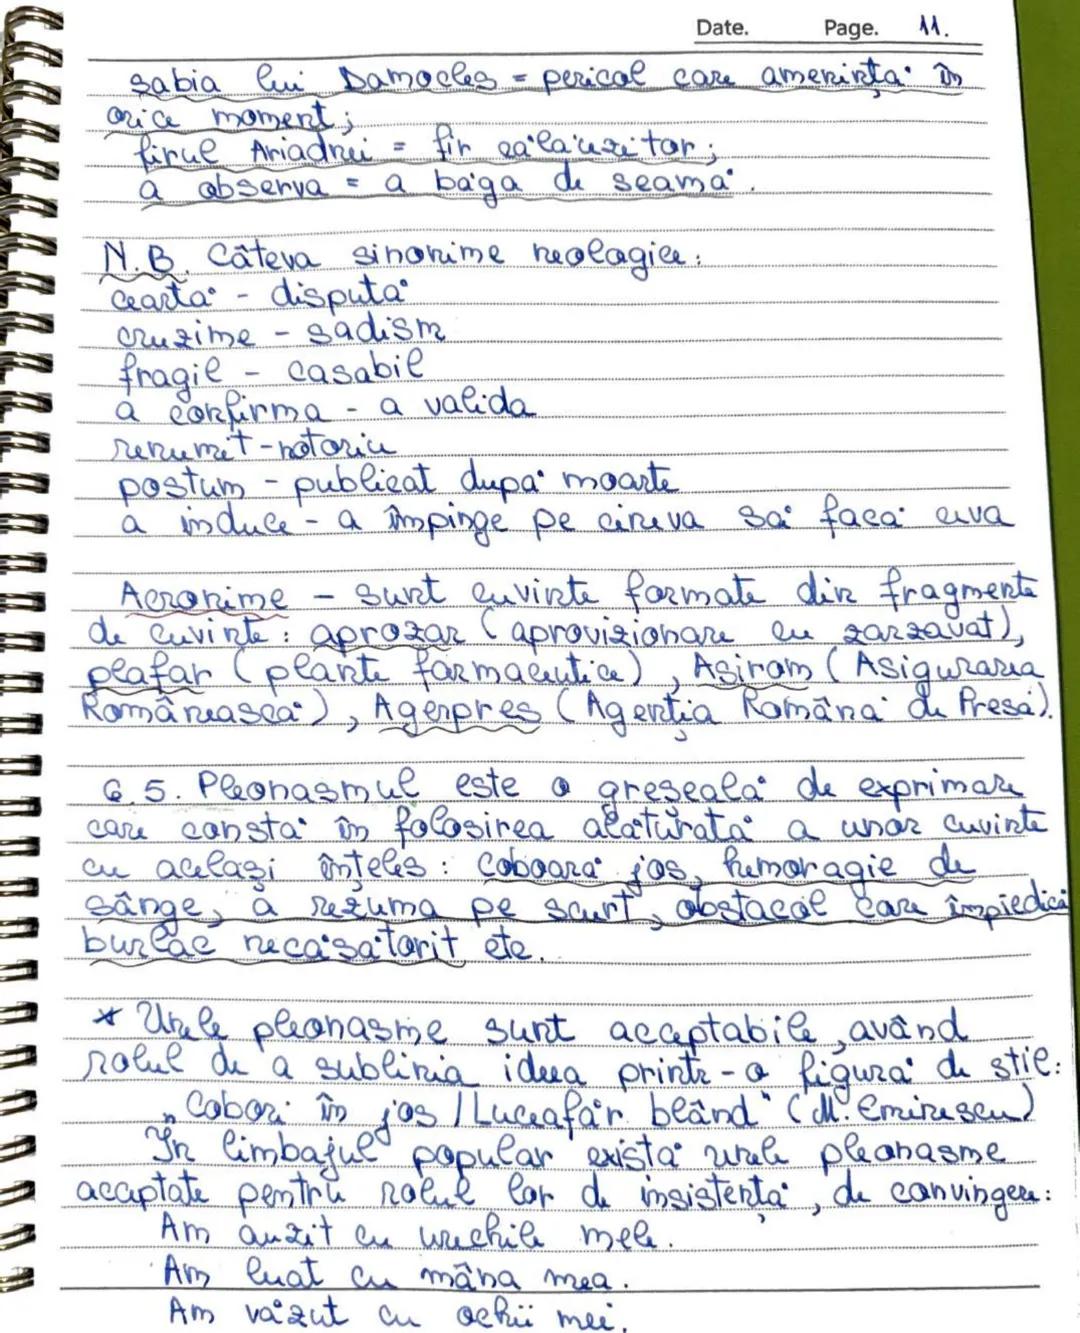 Date. Page. 11.
sabia lui Damocles = pericol care amenință în
orice moment;
firul Ariadnei = fir călăuzitor;
a observa = a băga de seamă.
N.B. Câteva sinonime neologice:
ceartă - dispută
cruzime - sadism
fragil - casabil
a confirma - a valida
renumit - notoriu
postum - publicat după moarte
a induce - a împinge pe cineva să facă ceva
Acronime - sunt cuvinte formate din fragmente
de cuvinte: aprozar (aprovizionare cu zarzavat),
plafar (plante farmaceutice), Asirom (Asigurarea
Românească), Agerpres (Agenția Română de Presă).
6.5. Pleonasmul este o greșeală de exprimare
care constă în folosirea alăturată a unor cuvinte
cu același înțeles: coboară jos, hemoragie de
sânge, a rezuma pe scurt, obstacol care împiedică
burlac necăsătorit etc.
* Unele pleonasme sunt acceptabile, având
rolul de a sublinia ideea printr-o figură de stil:
„Cobori în jos / Luceafăr blând" (M. Eminescu)
În limbajul popular există unele pleonasme
acceptate pentru rolul lor de insistență, de convingere:
Am auzit cu urechile mele.
Am luat cu mâna mea.
Am văzut cu ochii mei.